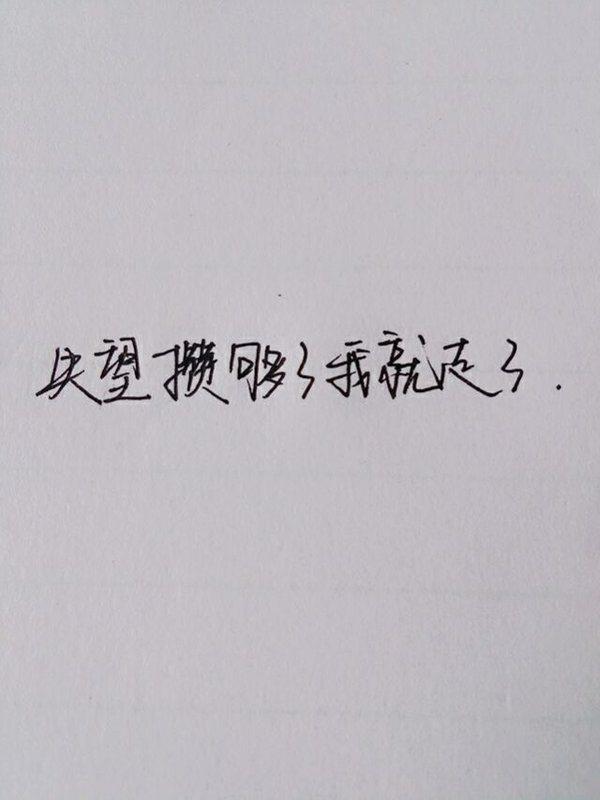 失望攒够了我就走了.